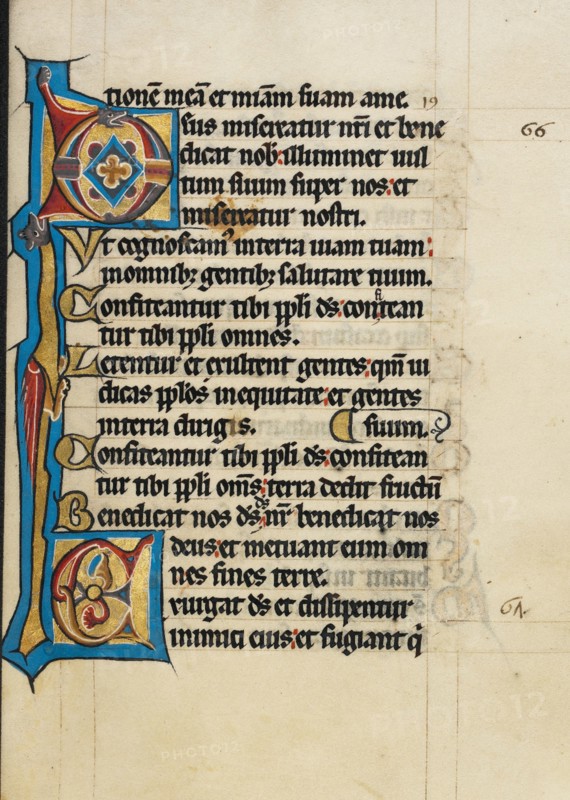 tionē meā et miām suam a me. 19
Deus misereatur nr̄i et bene 66
dicat nob: illuminet uul
tum suum super nos: et
misereatur nostri.
Vt cognoscam' in terra uiam tuam:
in omnibȝ gentibȝ salutare tuum.
Confiteantur tibi ppl̄i ds̄: confitean
tur tibi ppl̄i omnes.
Letentur et exultent gentes: qm̄ iu
dicas ppl̄os in equitate: et gentes
in terra dirigis. fructum suum.
Confiteantur tibi ppl̄i ds̄: confitean
tur tibi ppl̄i om̄s: terra dedit fructū
Benedicat nos ds̄ ds̄ nr̄ benedicat nos
deus: et metuant eum om
nes fines terre.
Exurgat ds̄ et dissipentur 67
inimici eius: et fugiant q̄
PHOTO12